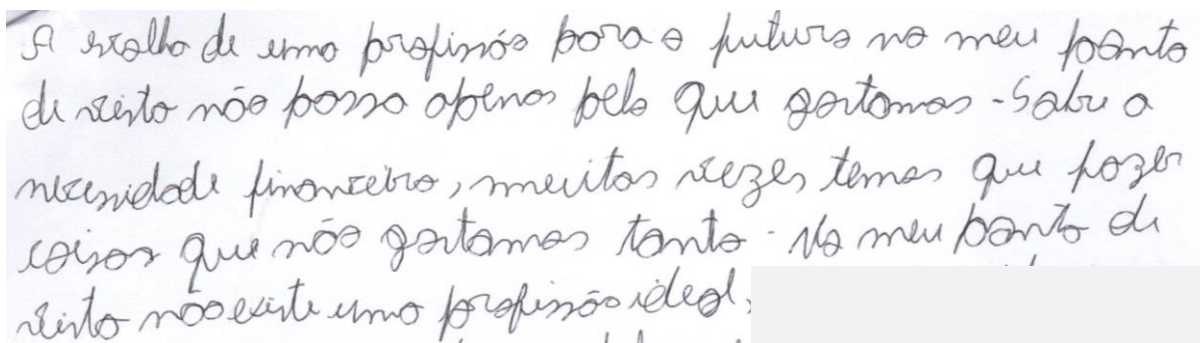 A escolha de uma profissão para o futuro no meu ponto
de vista não possa apenas pelo que gostamos - Sabe a
necessidade financeira, muitas vezes temos que fazer
coisas que não gostamos tanto. No meu ponto de
vista não existe uma profissão ideal,